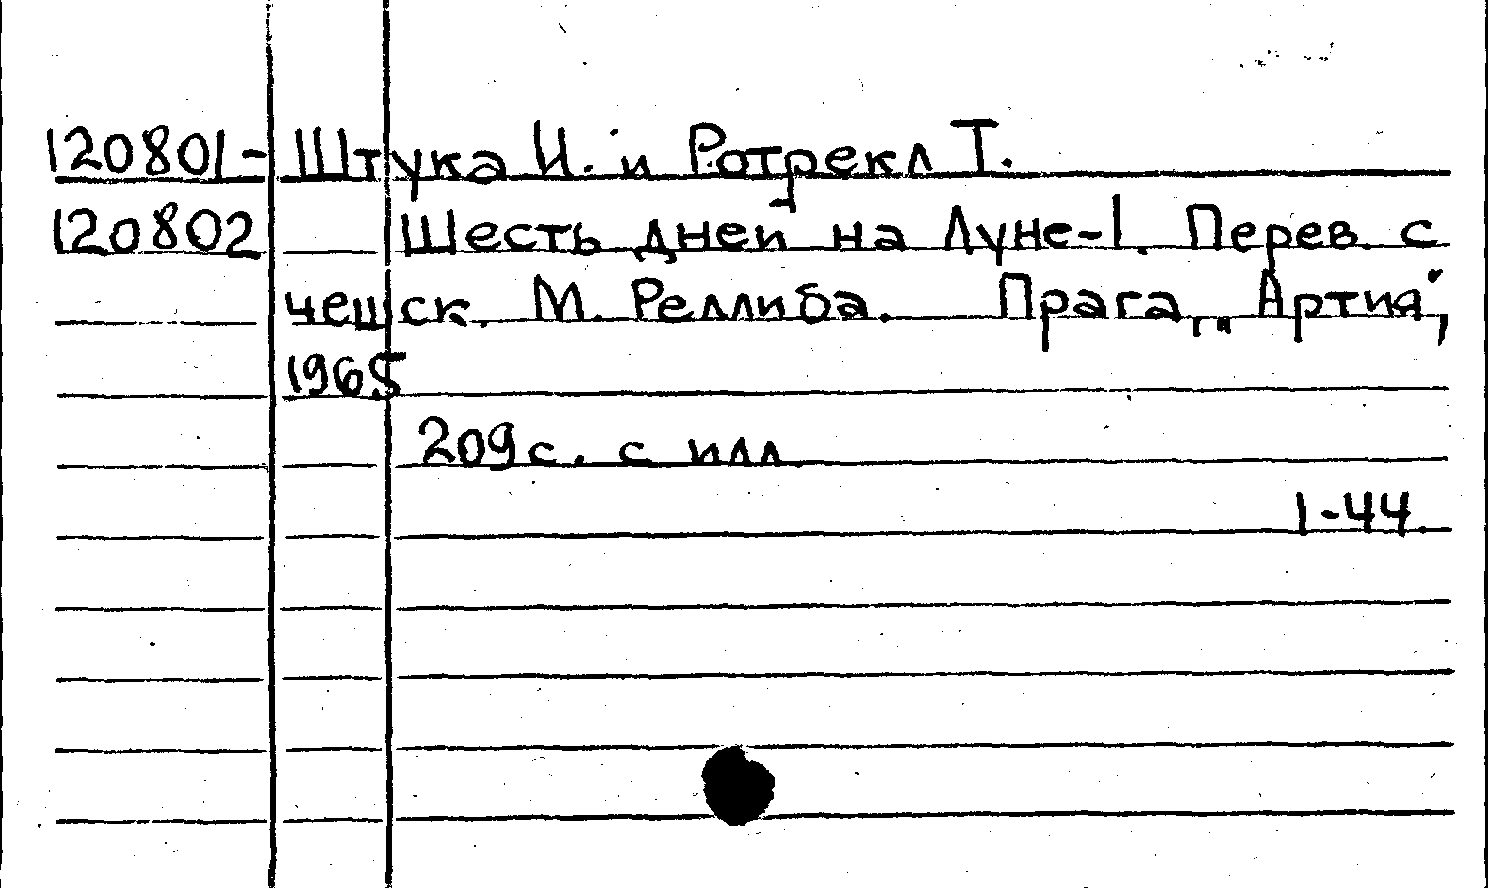 120801- Штука И. и Ротрекл Т.
120802 Шесть дней на Луне-1. Перев. с
чешск. М. Реллиба. Прага, „Артия",
1965
209 с. с илл.
1-44.